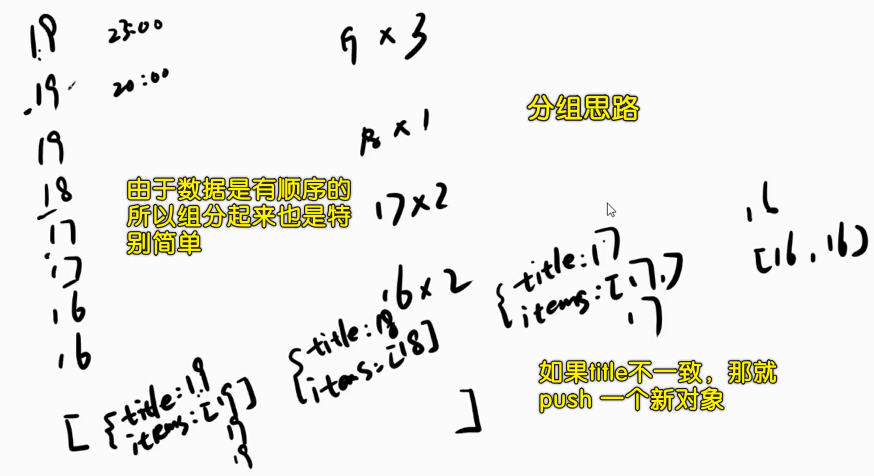 19 23:00
19 20:00
19
18
17
17
16
16
9 × 3
18 × 1
17 × 2
16 × 2
分组思路
由于数据是有顺序的
所以组分起来也是特
别简单
[ { title: 19
items: [19]
19
19
{ title: 18
items: [18]
]
{ title: 17
items: [17,]
17
16
[16, 16)
如果title不一致，那就
push 一个新对象